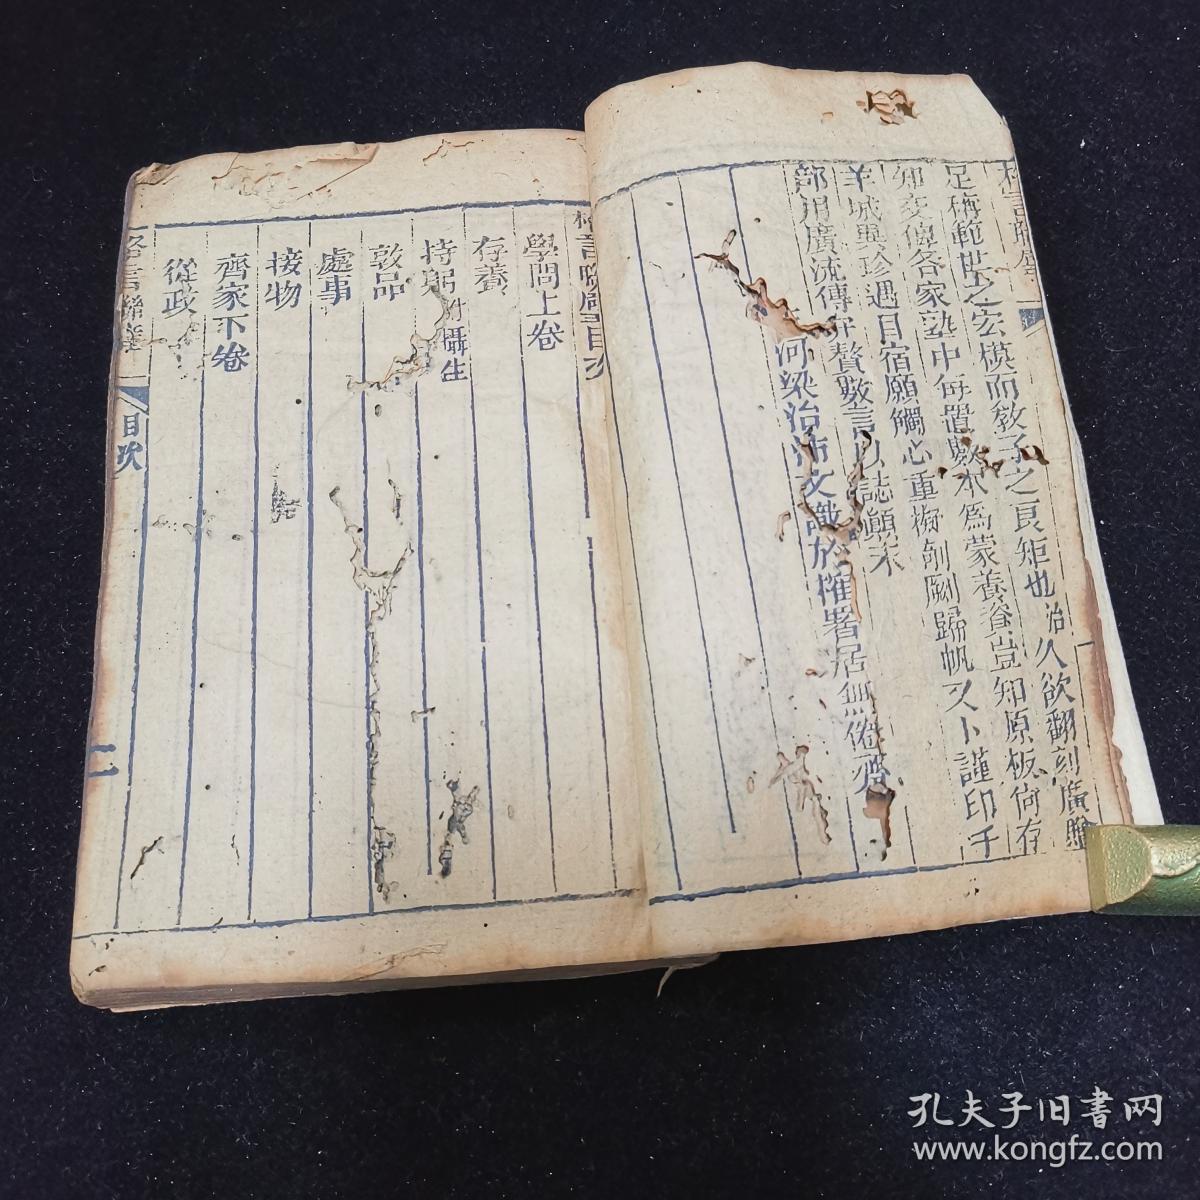 足稱範世之宏模而敎子之良矩也治久欲翻刻廣贈
知交俾各家塾中每置數本爲蒙養資豈知原板尙存
羊城興珍遇目宿願觸心重梅剞劂歸帆又卜謹印千
部用廣流傳 贅數言以誌顚末
河梁治沛文識於權署居無倦齋
格言聯璧目次
學問上卷
存養
持躬附攝生
敦品
處事
接物
齊家下卷
從政
格言聯璧
目次
二
孔夫子旧书网
www.kongfz.com